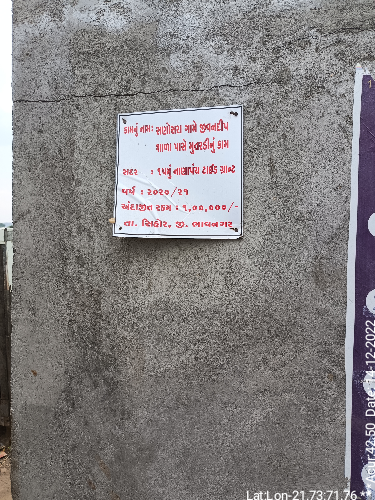 કામનું નામ: સણોસરા ગામે જીવનદીપ
શાળા પાસે મુતરડીનું કામ
સદર : ૧૫મું નાણાપંચ ટાઈડ ગ્રાન્ટ
વર્ષ : ૨૦૨૦/૨૧
અંદાજીત રકમ : ૧,૦૦,૦૦૦/-
તા. સિહોર, જી. ભાવનગર
Lat:Lon-21.73:71.76 ** Acur.42.50 Date:14-12-2022